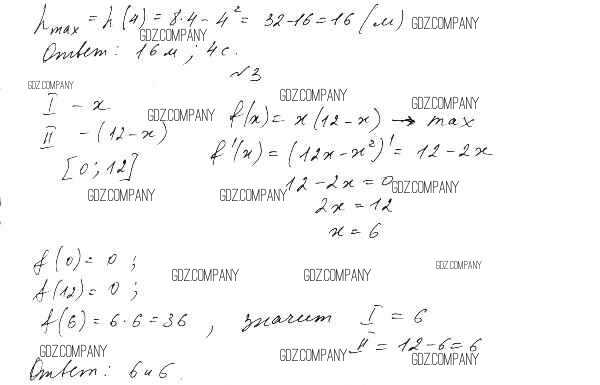 h max = h(4) = 8·4 - 4² = 32-16 = 16 (м) GDZ.COMPANY
GDZ.COMPANY
Ответ: 16 м; 4 с.
№3
GDZ.COMPANY
GDZ.COMPANY
I - x
GDZ.COMPANY
GDZ.COMPANY
f(x) = x(12-x) → max
II - (12-x)
f'(x) = (12x-x²)' = 12-2x
[0;12]
12-2x=0
GDZ.COMPANY
GDZ.COMPANY
GDZ.COMPANY
2x=12
x=6
f(0)=0;
GDZ.COMPANY
GDZ.COMPANY
GDZ.COMPANY
f(12)=0;
f(6)=6·6=36, значит I = 6
II = 12-6=6
GDZ.COMPANY
GDZ.COMPANY
GDZ.COMPANY
Ответ: 6 и 6.